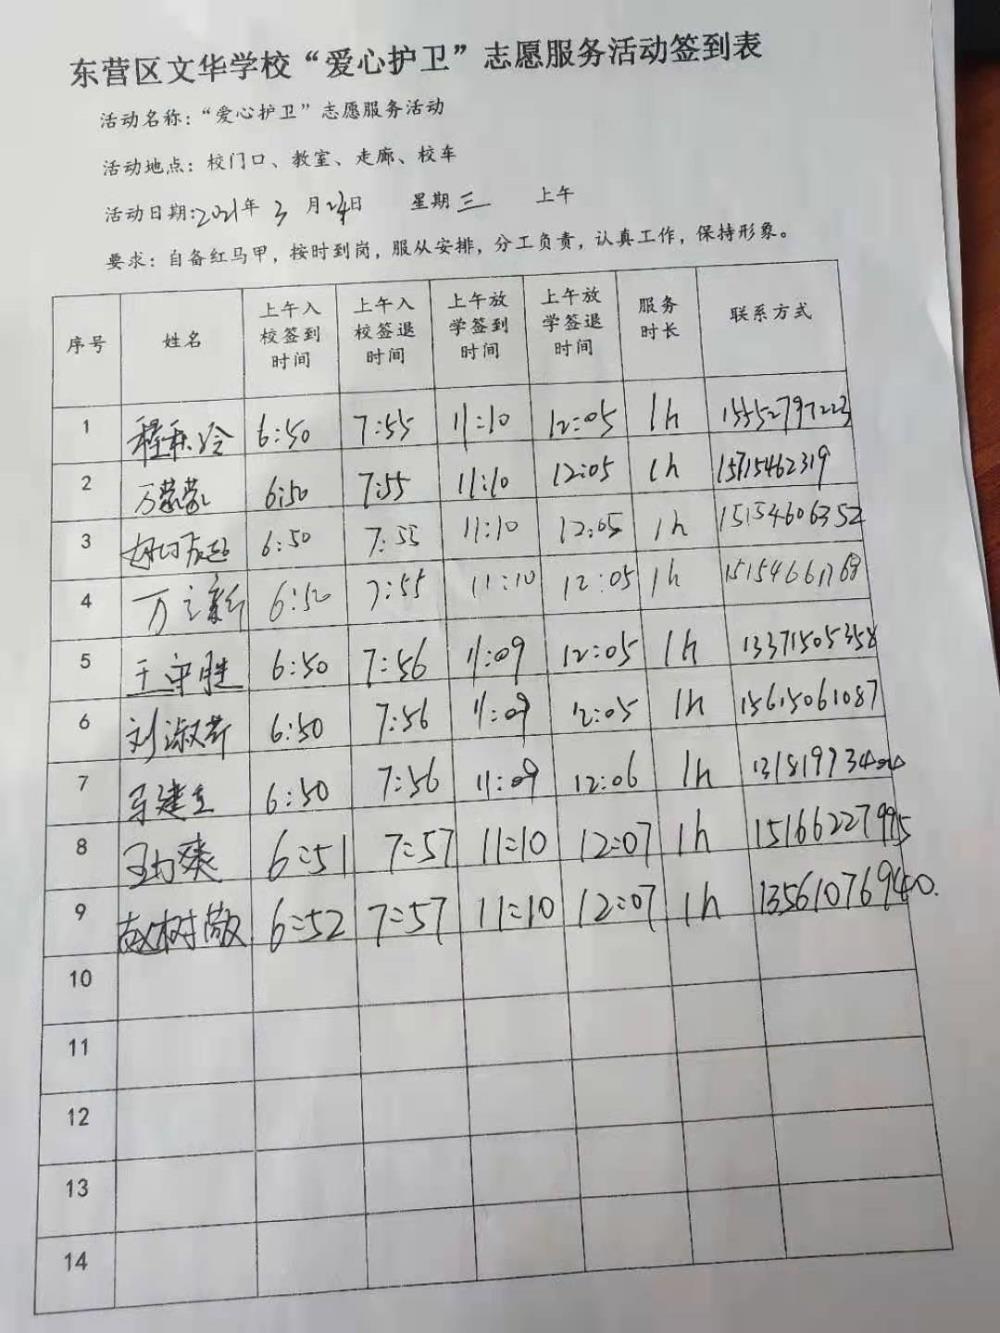 东营区文华学校“爱心护卫”志愿服务活动签到表
活动名称：“爱心护卫”志愿服务活动
活动地点：校门口、教室、走廊、校车
活动日期:2021年 3 月24日 星期三 上午
要求：自备红马甲，按时到岗，服从安排，分工负责，认真工作，保持形象。
序号 姓名 上午入校签到时间 上午入校签退时间 上午放学签到时间 上午放学签退时间 服务时长 联系方式
1 程秋冷 6:50 7:55 11:10 12:05 1h
2 万蒙蒙 6:50 7:55 11:10 12:05 1h 15715462319
3 6:50 7:55 11:10 12:05 1h 15154606352
4 万立新 6:50 7:55 11:10 12:05 1h 15154661768
5 王守胜 6:50 7:56 11:09 12:05 1h 13371505358
6 刘淑芹 6:50 7:56 11:09 12:05 1h 15615061087
7 马建立 6:50 7:56 11:09 12:06 1h
8 6:51 7:57 11:10 12:07 1h
9 赵树敬 6:52 7:57 11:10 12:07 1h 13561076940.
10
11
12
13
14